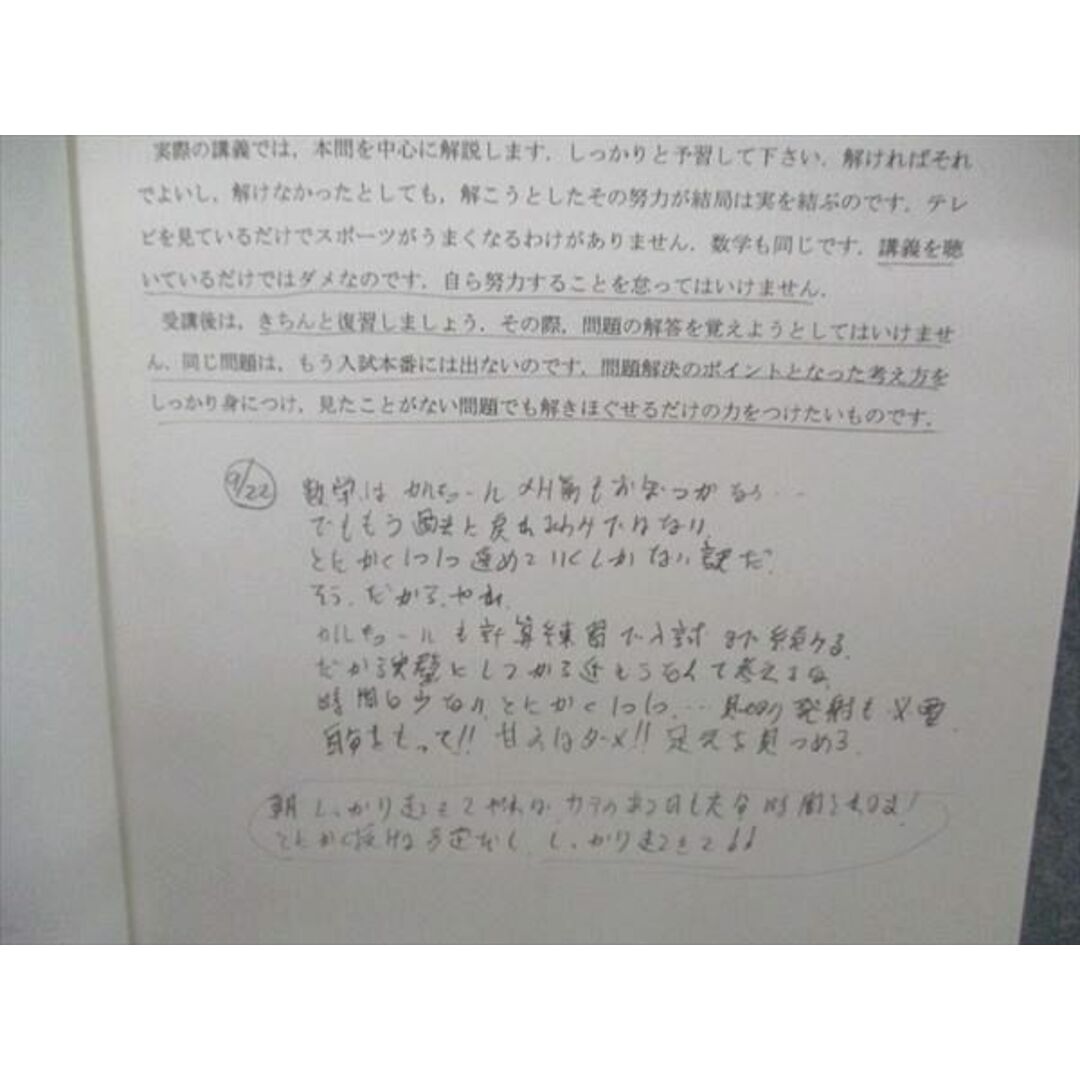 実際の講義では，本問を中心に解説します．しっかりと予習して下さい．解ければそれ
でよいし，解けなかったとしても，解こうとしたその努力が結局は実を結ぶのです．テレ
ビを見ているだけでスポーツがうまくなるわけがありません．数学も同じです．講義を聴
いているだけではダメなのです．自ら努力することを怠ってはいけません．
受講後は，きちんと復習しましょう．その際，問題の解答を覚えようとしてはいけませ
ん．同じ問題は，もう入試本番には出ないのです．問題解決のポイントとなった考え方を
しっかり身につけ，見たことがない問題でも解きほぐせるだけの力をつけたいものです．
9/22 数学は カルキュール
でももう過去に戻れるわけではない
とにかく1つ1つ進めていくしかない訳だ.
そう.だから.やれ.
カルキュールも計算練習で入試まで続ける.
時間も少ない とにかく1つ1つ…
自信をもって!! 甘えはダメ!! 足元を見つめろ.
朝 しっかり起きて
とにかく しっかり起きて!!